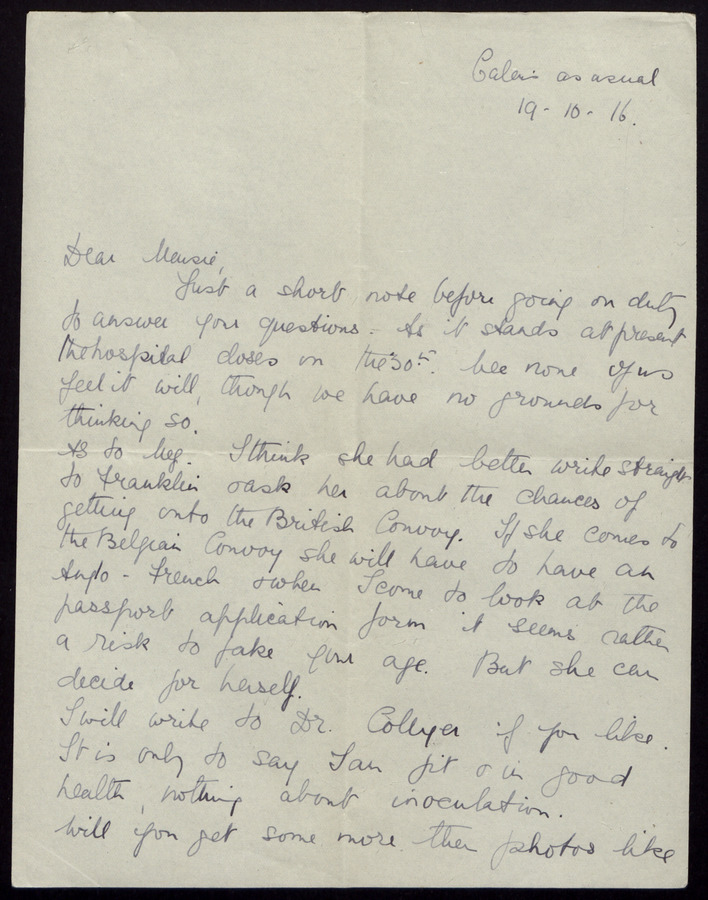 Calais as usual
19-10-16.
Dear
Just a short note before going on duty
to answer your questions. As it stands at present
the hospital closes on the 30th. But none of us
feel it will, though we have no grounds for
thinking so.
As to Meg. I think she had better write straight
to Franklin & ask her about the chances of
getting onto the British Convoy. If she comes to
the Belgian Convoy she will have to have an
Anglo-French & when I come to look at the
passport application form it seems rather
a risk to fake your age. But she can
decide for herself.
I will write to Dr. Collyer if you like.
It is only to say I am fit & in good
health, nothing about inoculation.
Will you get some more then photos like